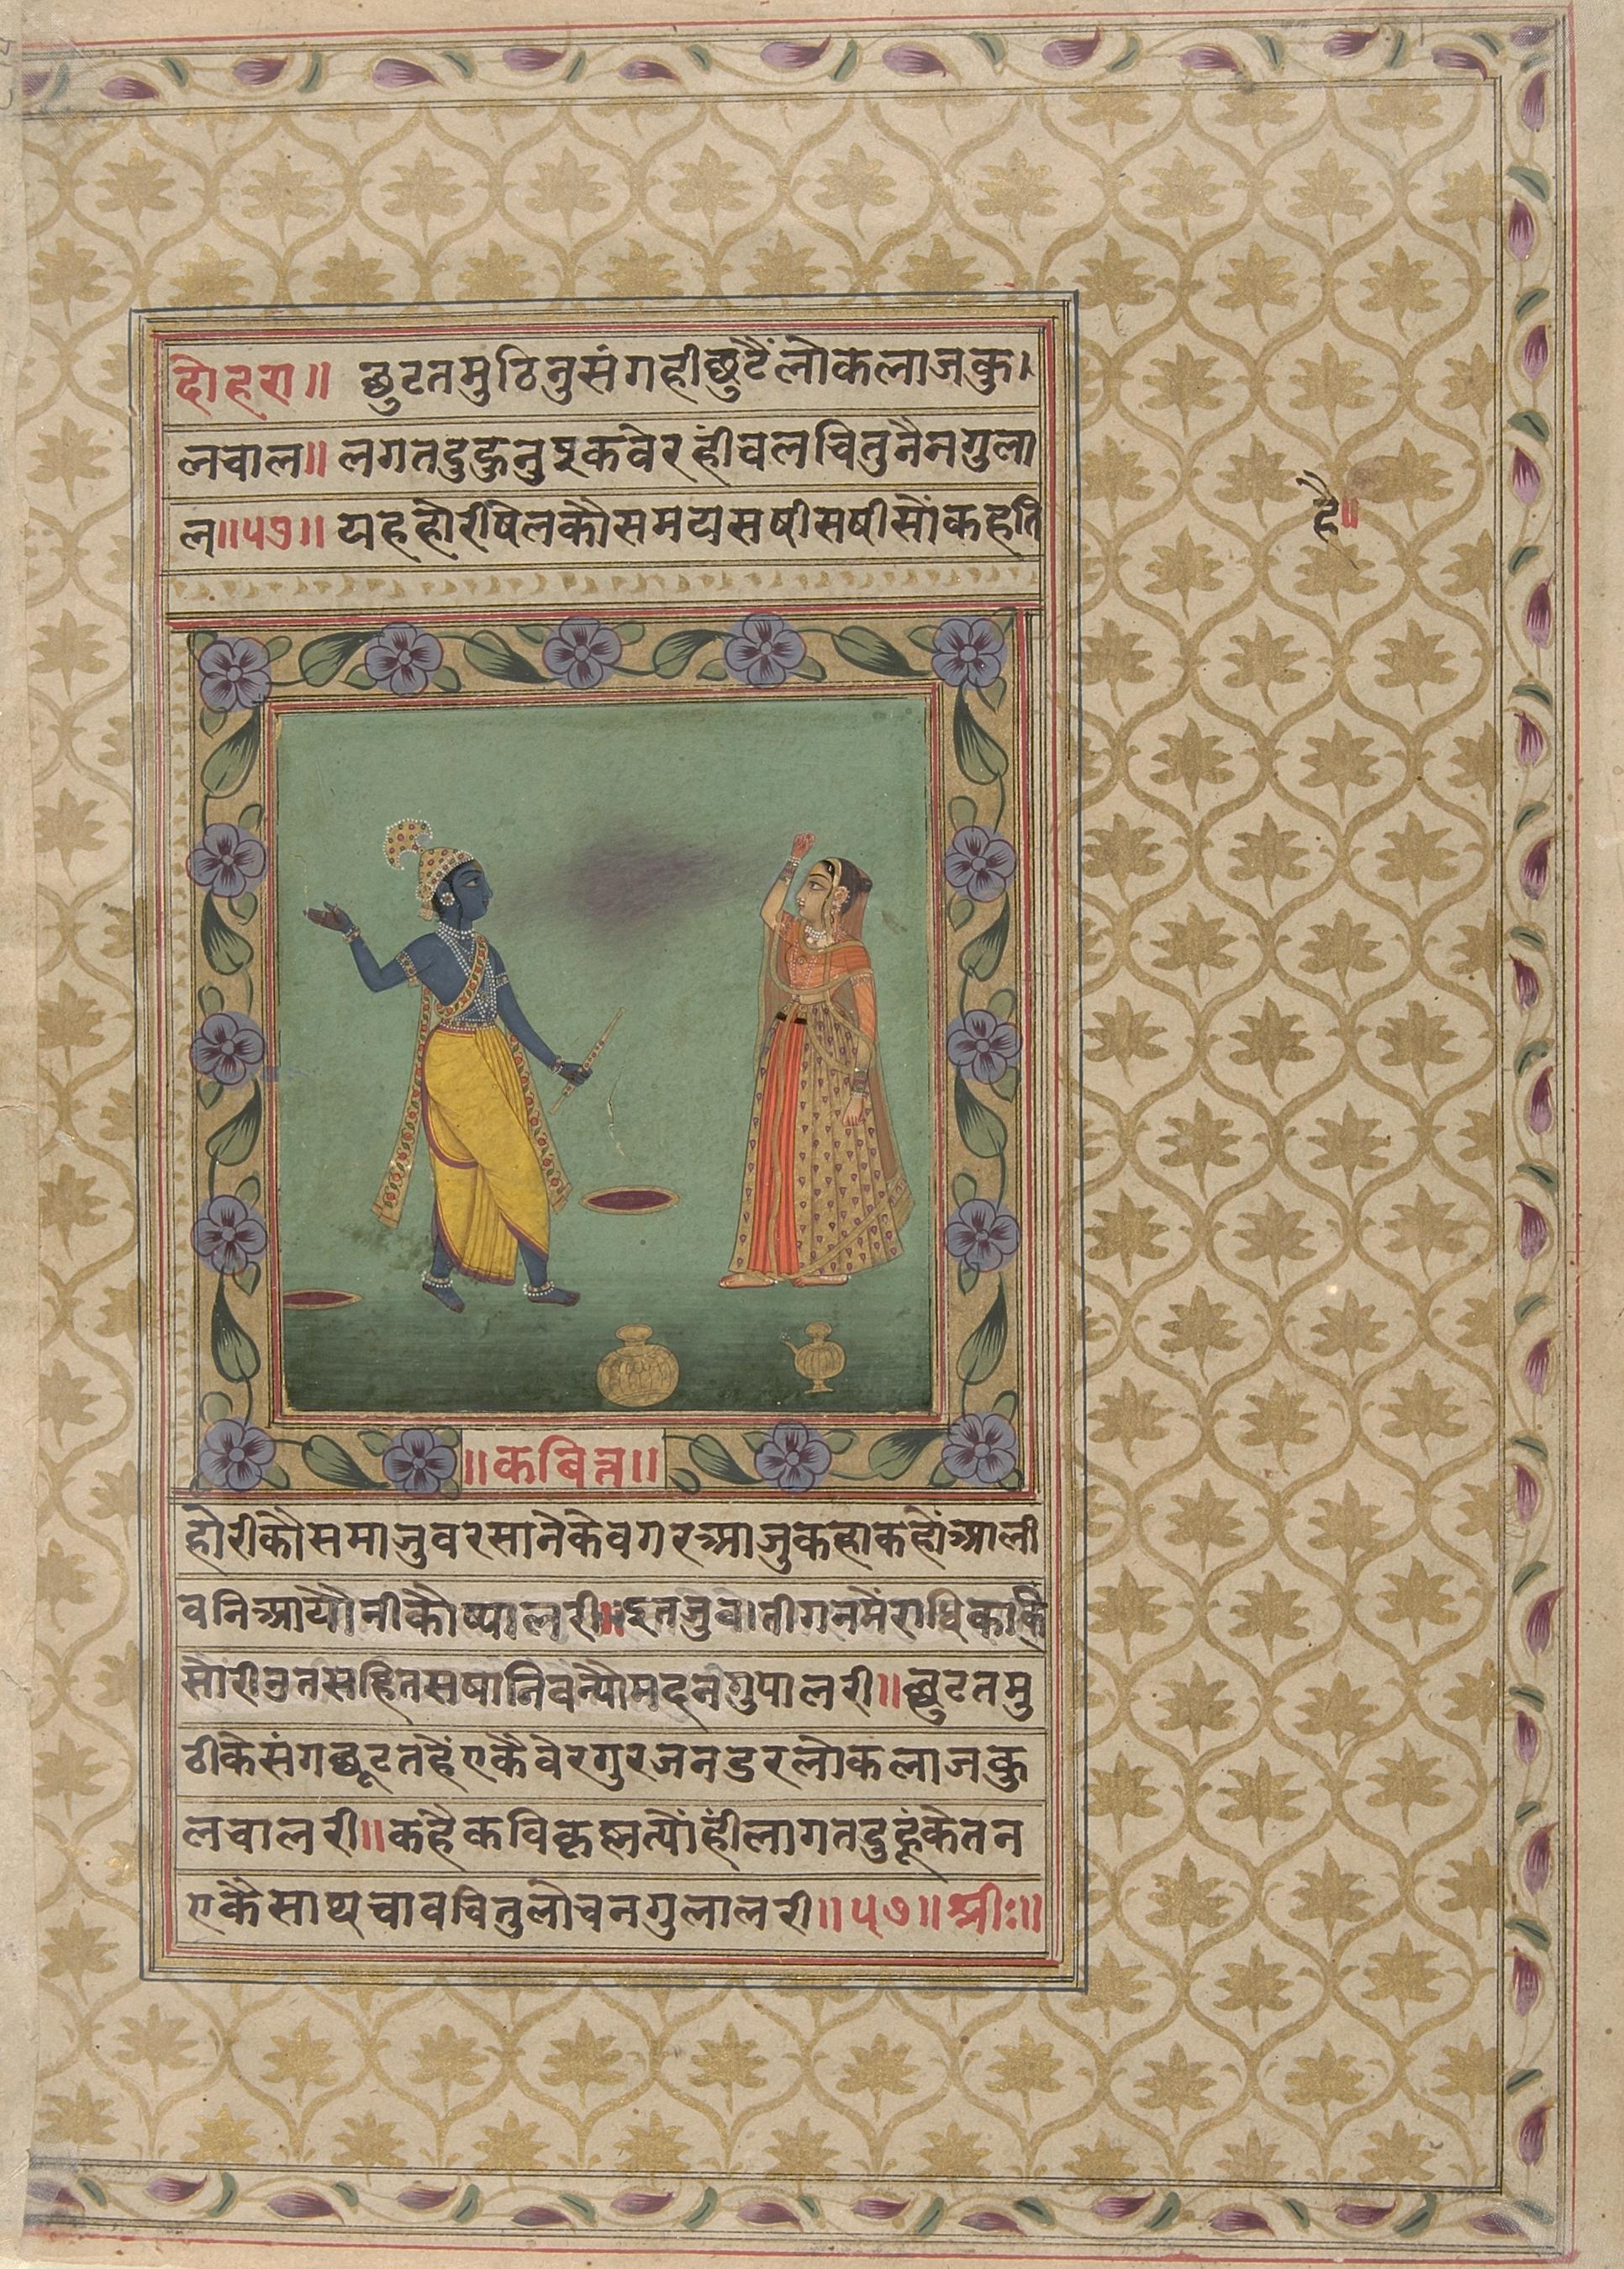 दोहरा॥ छुटतमुठिनुसंगहीछुटैंलोकलाजकु।
लचाल॥ लगतदुहुनुइकवेरहींचलचितुनैनगुला
ल॥५७॥ यहहोरीषेलकौसमयसषीसषीसौंकहति
है॥
॥कबित्त॥
होरीकौसमाजुवरसानेकेवगरआजुकहाकहोंआली
वनिआयौनीकौष्यालरी॥इतजुवतीगनमैंराधिका
सोरीउतसहितसषानिवन्यौमदनगुपालरी॥छुटतमु
ठीकेसंगछूटतहैंएकैवेरगुरजनडरलोकलाजकु
लचालरी॥कहैकविकृष्नत्यौंहींलागतदुहूंकेतन
एकैसाथचावचितुलोचनगुलालरी॥५७॥श्रीः॥